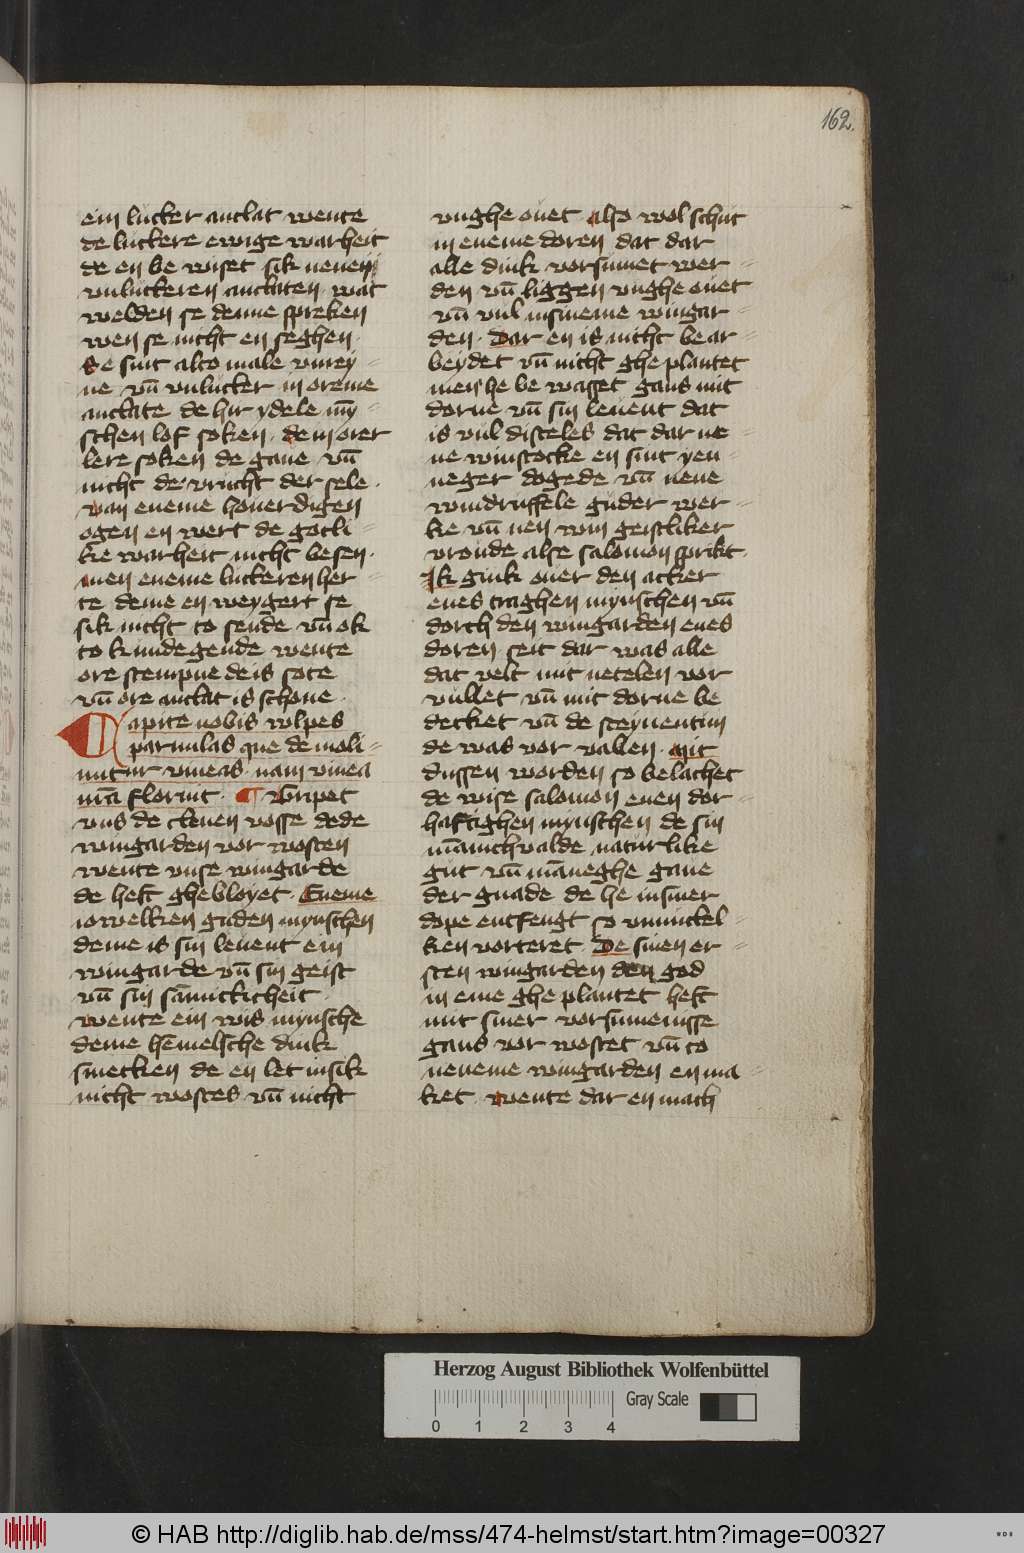 162.
ein lucker anclat wente
de luckere ewige warheit
de en be wiset sik nenen
vnluckeren anclaten. wat
welden se denne spreken
wen se nicht en seghen.
Se sint alto male vnrey=
ne vn̄ vnlucker in oreme
anclate de hir ydele my̅=
schen lof soken. de in orer
lere soken de gaue vn̄
nicht de vrucht der sele.
van eneme houerdigen
ogen en wert de gotli=
ke warheit nicht besen.
men eneme luckeren her=
te deme en weygert se
sik nicht to sende vn̄ ok
to kundegende wente
ore stempne de is sote
vn̄ ore anclat is schone.
Capite nobis wlpes
paruulas que demoli=
untur vineas. nam vinea
nr̄a floruit. ¶ Gripet
vns de cleuen vosse dede
wingarden vor wosten
wente vnse wingarde
de heft ghebloyet. Eneme
iowelken guden mynschen
deme is sin leuent ein
wingarde vn̄ sin geist
vn̄ sin san̄nicticheit.
wente ein wis mynsche
deme hemelsche dink
smecken de en let in sik
nicht wostes vn̄ nicht
vnghe ouet also wol schut
in eneme doren dat dar
alle dink vorsumet wer=
den vn̄ liggen vnghe ouet
vn̄ vul in sineme wingar=
den. Dar en is nicht bear=
beydet vn̄ nicht ghe plantet
men he be wasset gans mit
dorne vn̄ sin leuent dat
is vul disteles dat dar ne=
ne winstocke en sint yen=
neger dogede vn̄ nene
windruffele guder wer=
ke vn̄ nen win geistliker
vronde alse salomon sprikt.
Ik gink ouer den acker
enes traghen mynschen vn̄
dorch den wingarden enes
doren seit dar was alle
dat velt mit netelen vor
vullet vn̄ mit dorne be
decket vn̄ de steynentun
de was vor vallen. Mit
dussen worden so belachet
de wise salomon enen dor=
haftighen mynschen de sin
man̄ichvalde naturlike
gut vn̄ man̄eghe gaue
der gnade de he in siner
dope entfengt so vnnuckel=
ken vorteret. De sinen er=
sten wingarden den god
in eme ghe plantet heft
mit siner vorsumenisse
gans vor wostet vn̄ to
neneme wingarden en ma=
ket. wente dar en mach
Herzog August Bibliothek Wolfenbüttel
0 1 2 3 4 Gray Scale
© HAB http://diglib.hab.de/mss/474-helmst/start.htm?image=00327